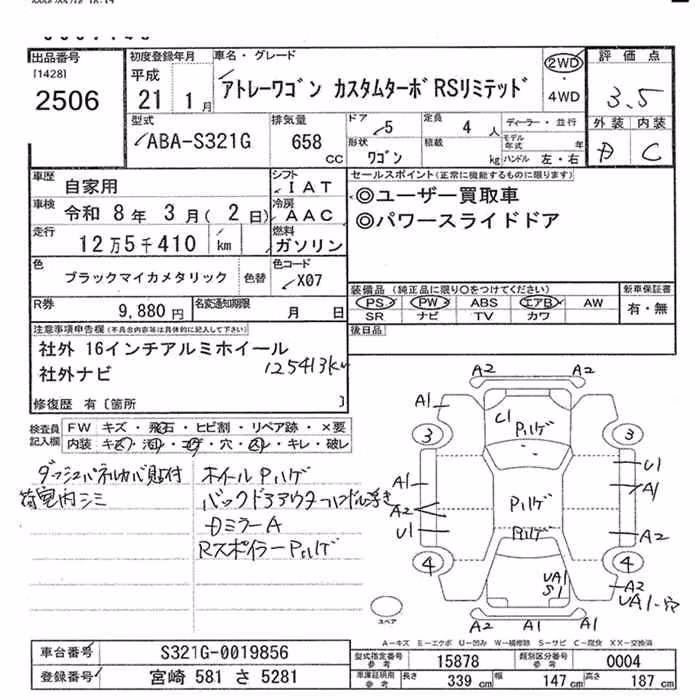 出品番号
[1428]
2506
初度登録年月
平成
21 1月
車名・グレード
アトレーワゴン カスタムターボRSリミテッド
2WD
・
4WD
評価点
3.5
外装 内装
C
型式
ABA-S321G
排気量
658
CC
ドア
5
定員
4人
ディーラー・並行
モデル年式 年
形状
ワゴン
積載
kg
ハンドル 左・右
車歴
自家用
シフト
IAT
車検
令和 8年 3月( 2日)
冷房
AAC
走行
12万5千410 / km
燃料
ガソリン
色
ブラックマイカメタリック
色替
色コード
X07
セールスポイント(正常に機能するものに限ります)
◎ユーザー買取車
◎パワースライドドア
R券
9,880円
名変通知期限
月 日
装備品(純正品に限り○をつけてください)
PS PW ABS エアB AW
SR ナビ TV カワ
新車保証書
有・無
後日品
注意事項申告欄(不具合内容等は具体的に記入して下さい)
社外 16インチアルミホイール
社外ナビ
125413km
修復歴 有 [箇所 ]
検査員記入欄
FW キズ・飛石・ヒビ割・リペア跡・×要
内装 キズ・汚れ・コゲ・穴・スレ・キレ・破レ
ダッシュパネルカバー貼付
荷室内シミ
ホイールPハゲ
バックドアアウターハンドル浮き
ミラーA
RスポイラーPハゲ
A2 A2
A1
C1
Pハゲ
3 3
A1
U1
A1
A2
Pハゲ
U1
Pハゲ
A2
4 4
UA1
S1
A2
UA1-穴
A2 A1 A1
スペア
A-キズ E-エクボ U-凹み W-補修跡 S-サビ C-腐食 XX-交換済
車台番号
S321G-0019856
登録番号
宮崎 581 さ 5281
型式指定番号
参考
15878
類別区分番号
参考
0004
車庫証明用
参考
長さ
339 cm
幅
147 cm
高さ
187 cm